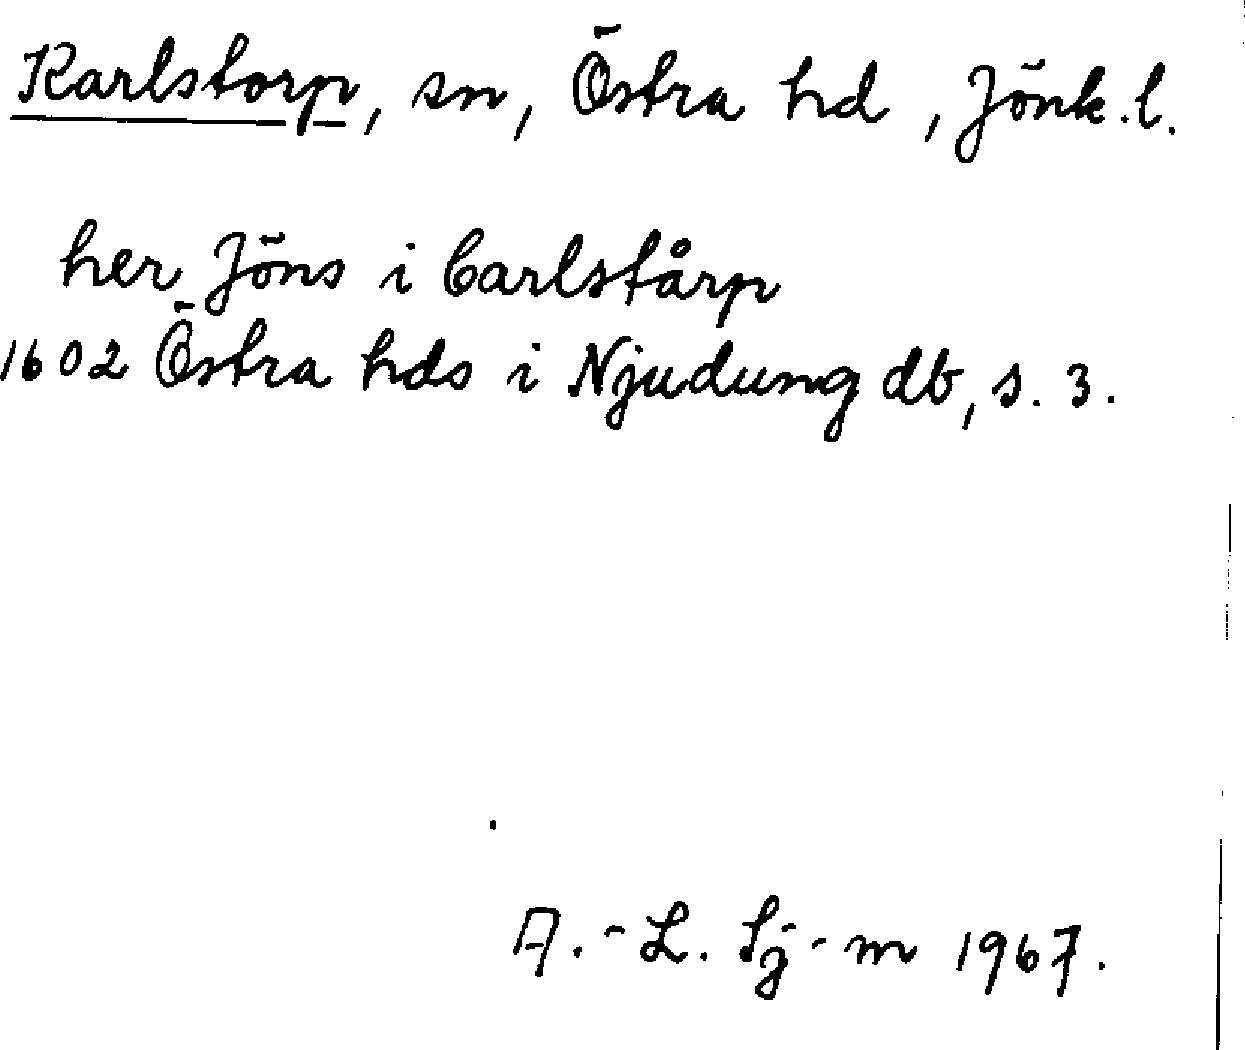 Karlstorp, sn, Östra hd, Jönk.l.
her Jöns i Carlstårp
1602 Östra hds i Njudung db, s. 3.
A.-L. Sj-m 1967.